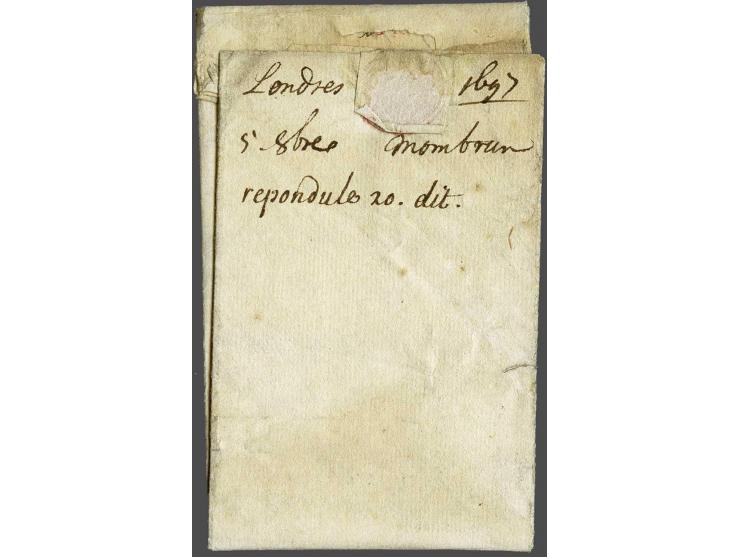 Londres 1697
5 8bre Mombrun
repondu le 20. dit.